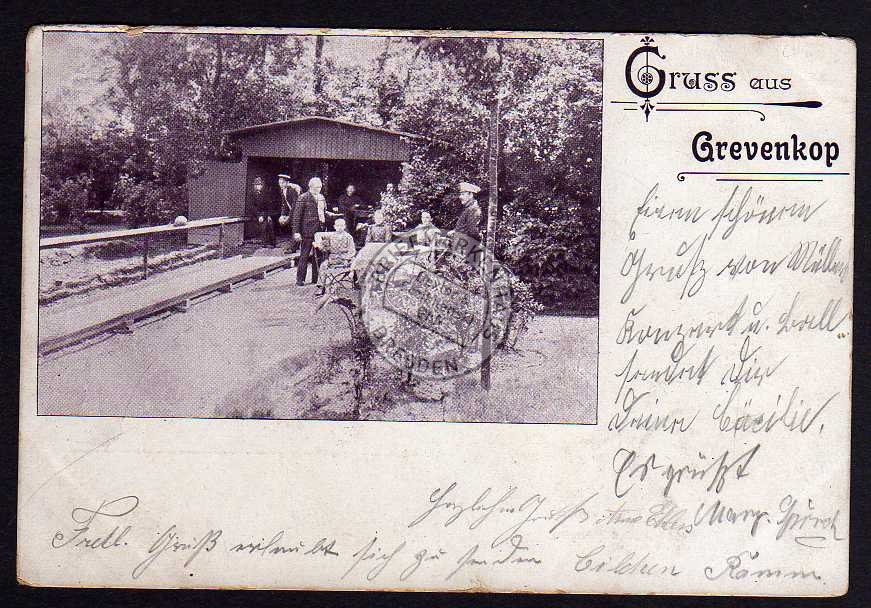 Gruss aus
Grevenkop
Einen schönen
Gruß von Müllers
Konzert u. Ball
sendet Dir
Deine Cäcilie.
Es grüßt
Herzlichen Gruß Marg.
Frdl. Gruß erlaubt sich zu senden